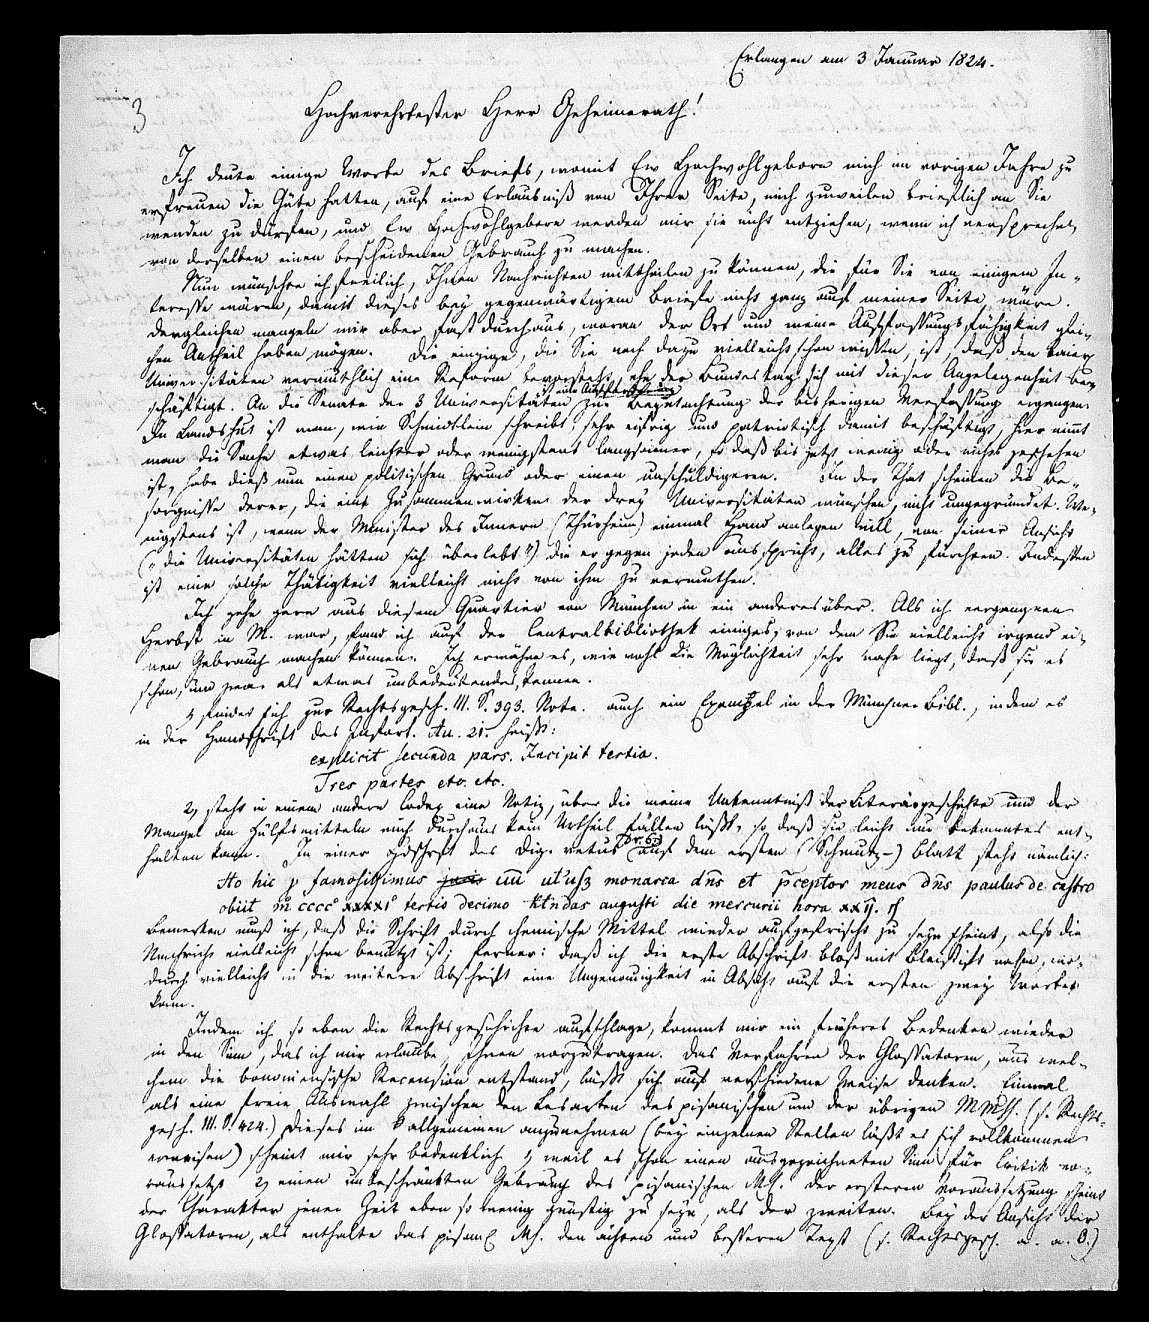 Erlangen am 3 Januar 1824.
3
Hochverehrtester Herr Geheimerath!
Ich deute einige Worte des Briefs, womit Ew Hochwohlgeboren mich im vorigen Jahre zu
erfreuen die Güte hatten, auf eine Erlaubniß von Ihrer Seite, mich zuweilen brieflich an Sie
wenden zu dürfen, und Ew Hochwohlgeboren werden mir sie nicht entziehen, wenn ich verspreche,
von derselben einen bescheidenen Gebrauch zu machen.
Nun wünschte ich freilich, Ihnen Nachrichten mittheilen zu können, die für Sie von einigem In-
teresse wären, damit dieses bey gegenwärtigem Briefe nicht ganz auf meiner Seite wäre.
Dergleichen mangeln mir aber fast durchaus, woran der Ort und meine Auffassungsfähigkeit glei-
chen Antheil haben mögen. Die einzige, die Sie noch dazu vielleicht schon wissen, ist, daß den baier.
Universitäten vermuthlich eine Reform bevorsteht, ehe der Bundestag sich mit dieser Angelegenheit be-
schäftigt. An die Senate der 3 Universitäten zur Begutachtung der bisherigen Verfassung ergangen.
In Landshut ist man, wie Schmidtlein schreibt, sehr eifrig und patriotisch damit beschäftigt, hier nimt
man die Sache etwas leichter oder wenigstens langsamer, so daß bis jetzt wenig oder nichts geschehen
ist, habe dieß nun einen politischen Grund oder einen unschuldigeren. In der That scheinen die Be-
sorgnisse derer, die ein Zusammenwirken der drey Universitäten wünschen, nicht ungegründet. We-
nigstens ist, wenn der Minister des Innern (Thürheim) einmal Hand anlegen will, von seiner Ansicht
("die Universitäten hätten sich überlebt") die er gegen jeden ausspricht, alles zu fürchten. Indessen
ist eine solche Thätigkeit vielleicht nicht von ihm zu vermuthen.
Ich gehe gern aus diesem Quartier von München in ein anderes über. Als ich vergangnen
Herbst in M. war, fand ich auf der Centralbibliothek einiges, von dem Sie vielleicht irgend ei-
nen Gebrauch machen können. Ich erwähne es, wie wohl die Möglichkeit sehr nahe liegt, daß sie es
schon, und zwar als etwas unbedeutendes, kennen.
1, findet sich zur Rechtsgesch. III. S. 393. Note. auch ein Exempel in der Münchner Bibl., indem es
in der Handschrift des Infort. An. 21. heißt:
explicit secunda pars. Incipit tertia.
Tres partes etc. etc.
2, steht in einem andern Codex eine Notiz, über die meine Unkenntniß der Literärgeschichte und der
Mangel an Hülfsmitteln mich durchaus kein Urtheil fällen läßt, so daß sie leicht nur bekanntes ent-
halten kann. In einer Hdschrft des Dig. vetus auf dem ersten (Schmutz-) Blatt steht nämlich:
hic famosissimus monarca dns et pceptor meus dns paulus de castro
obiit m cccc xxxxi tertio decimo klndas augusti die mercurii hora xxij.
Bemerken muß ich, daß die Schrift durch chemische Mittel wieder aufgefrischt zu seyn scheint, also die
Nachricht vielleicht schon benutzt ist; ferner: daß ich die erste Abschrift bloß mit Bleistift nahm, wo-
durch vielleicht in die weitere Abschrift eine Ungenauigkeit in Absicht auf die ersten zwey Worte
kam.
Indem ich so eben die Rechtsgeschichte aufschlage, kommt mir ein früheres Bedenken wieder
in den Sinn, das ich mir erlaube, Ihnen vorzutragen. Das Verfahren der Glossatoren, aus wel-
chem die bononiensische Recension entstand, läßt sich auf verschiedene Weise denken. Einmal
als eine freie Auswahl zwischen den Lesarten des pisanischen und der übrigen Mss. (s. Rechts-
gesch. III. S. 424.) Dieses im allgemeinen anzunehmen (bey einzelnen Stellen läßt es sich vollkommen
erweisen) scheint mir sehr bedenklich 1, weil es schon einen ausgezeichneten Sinn für Critik vo-
raussetzt 2, einen unbeschränkten Gebrauch des pisanischen Ms. Der ersteren Voraussetzung scheint
der Charakter jener Zeit eben so wenig günstig zu seyn, als der zweiten. Bey der Ansicht der
Glossatoren, als enthalte das pisan. Ms. den ächten und besseren Text (s. Rechtsgesch. a. a. O.)